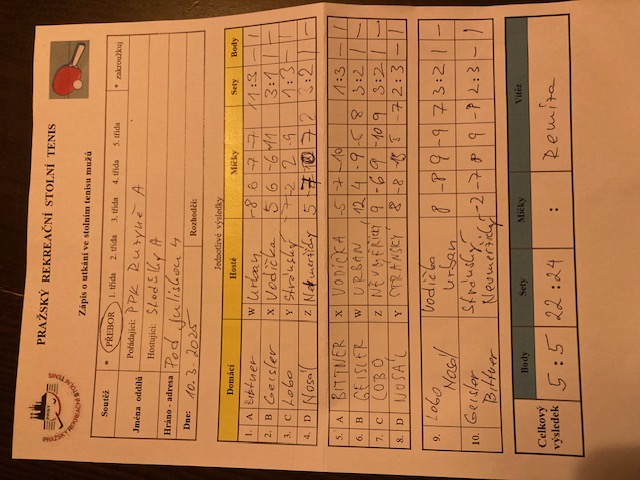 PRAŽSKÝ REKREAČNÍ STOLNÍ TENIS
Zápis o utkání ve stolním tenisu mužů
Soutěž * PŘEBOR 1. třída 2. třída 3. třída 4. třída 5. třída * zakroužkuj
Jména oddílů Pořádající: PPK A
Hostující: Stodůlky A
Hráno - adresa Pod Juliskou 4
Dne: 10.3.2025 Rozhodčí:
Jednotlivé výsledky
Domácí Hosté Míčky Sety Body
1. A Bittner W Urban -8 6 -7 -7 1:3 - 1
2. B Geisler X Vodička 5 6 -6 11 3:1 1 -
3. C Lobo Y Stránský -7 -2 2 -9 1:3 - 1
4. D Nosál Z 5 7 3:2 1 -
5. A BITTNER X VODIČKA -5 -7 -10 1:3 - 1
6. B GEISLER W URBAN 12 4 -9 -5 8 3:2 1 -
7. C LOBO Z 9 -6 9 -10 9 3:2 1 -
8. D NOSÁL Y STRÁNSKÝ 8 -8 5 -7 2:3 - 1
9. Lobo Vodička 8 -8 9 -9 7 3:2 1 -
Nosál Urban
10. Geisler Stránský -2 -7 8 9 -8 2:3 - 1
Bittner
Body Sety Míčky Vítěz
Celkový výsledek 5:5 22:24 : Remíza